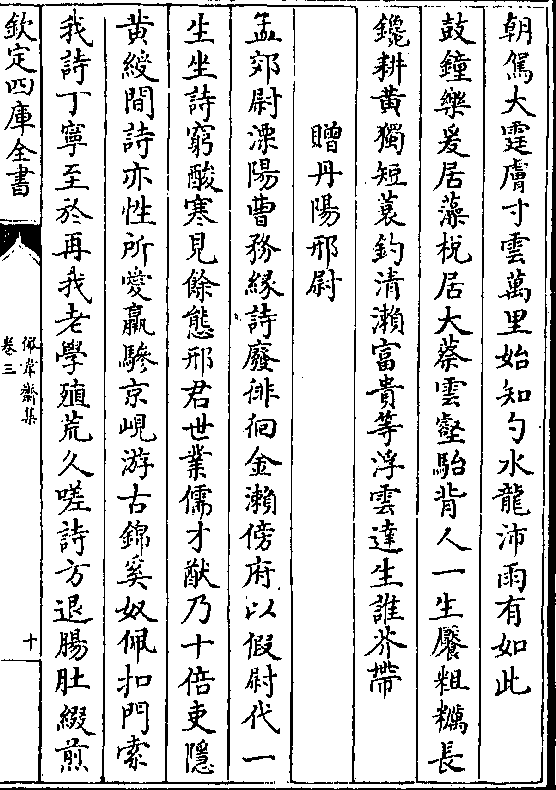 朝馬大霆膚寸雲萬里始知勺水龍沛雨有如此
鼓鐘樂爰居藻梲居大蔡雲壑駘背人一生饜粗糲長
鑱耕黃獨短蓑釣清瀨富貴等浮雲達生誰芥蔕
贈丹陽邢尉
孟郊尉溧陽曹務緣詩廢徘徊金瀨傍府以假尉代一
生坐詩窮酸寒見餘態邢君世業儒才猷乃十倍吏隱
黃綬間詩亦性所愛羸驂京峴游古錦奚奴佩扣門索
我詩丁寧至於再我老學殖荒久嗟詩方退腸肚綴煎
欽定四庫全書
佩韋齋集
卷三
十